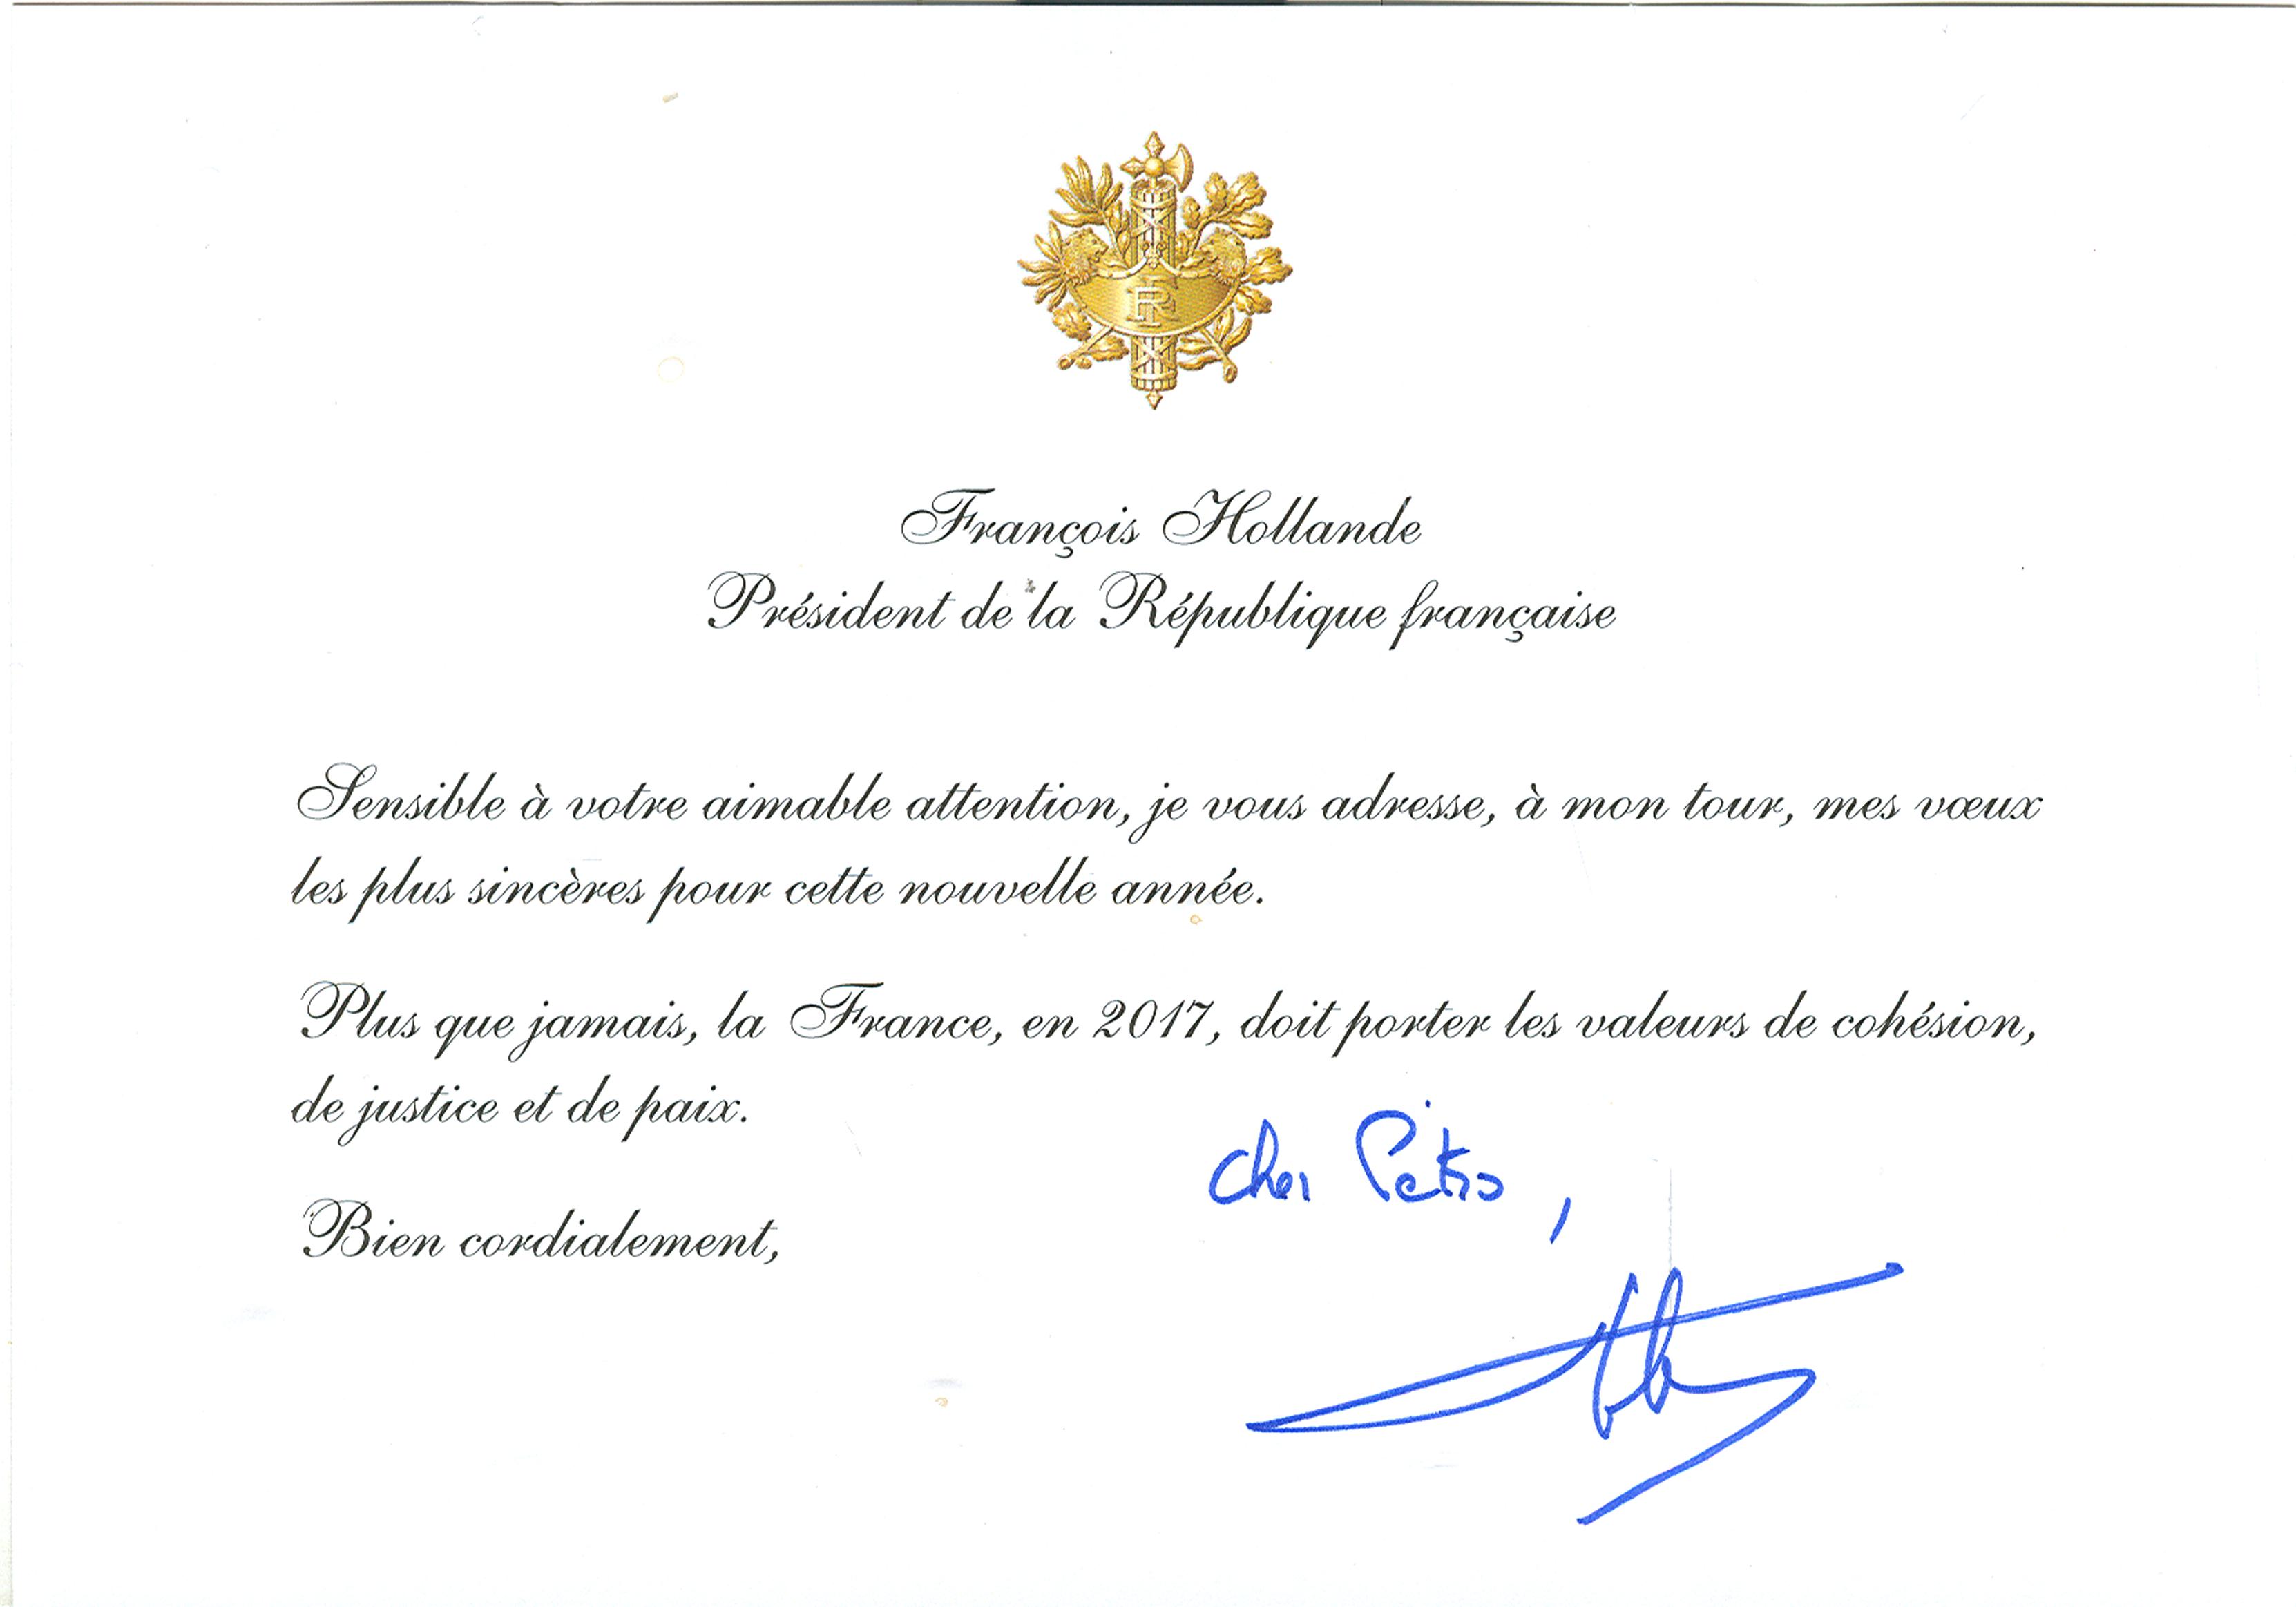 RF
François Hollande
Président de la République française
Sensible à votre aimable attention, je vous adresse, à mon tour, mes vœux
les plus sincères pour cette nouvelle année.
Plus que jamais, la France, en 2017, doit porter les valeurs de cohésion,
de justice et de paix.
Cher Petros,
Bien cordialement,